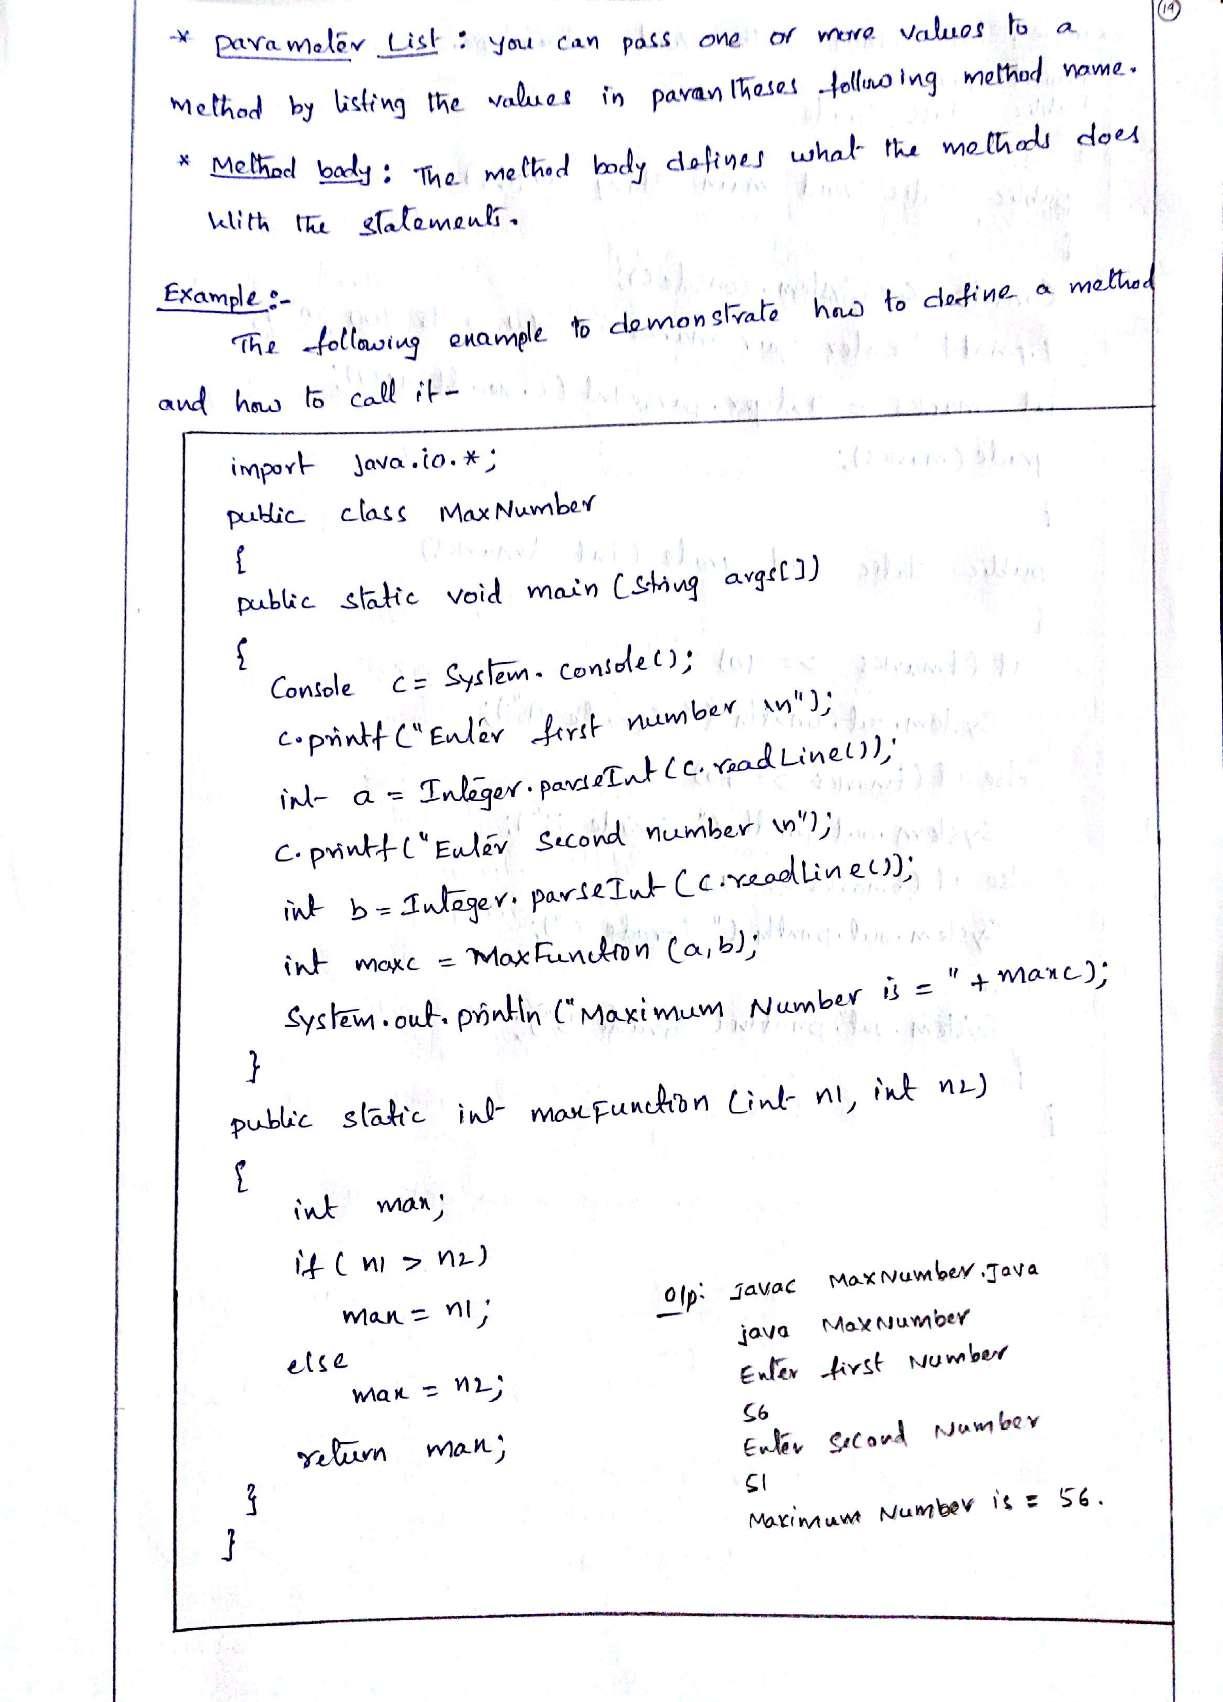 19
* Parameter List : you can pass one or more values to a
method by listing the values in parantheses following method name.
* Method body : The method body defines what the methods does
With the statements.
Example :-
The following example to demonstrate how to define a method
and how to call it -
import java.io.*;
public class MaxNumber
{
public static void main (String args[])
{
Console c = System.console();
c.printf ("Enter first number \n");
int a = Integer.parseInt (c.readLine());
c.printf ("Enter Second number \n");
int b = Integer.parseInt (c.readLine());
int maxc = MaxFunction (a,b);
System.out.println ("Maximum Number is = " + maxc);
}
public static int maxFunction (int n1, int n2)
{
int max;
if ( n1 > n2)
max = n1;
else
max = n2;
return max;
}
}
O/p: Javac MaxNumber.Java
java MaxNumber
Enter first Number
56
Enter Second Number
51
Maximum Number is = 56.